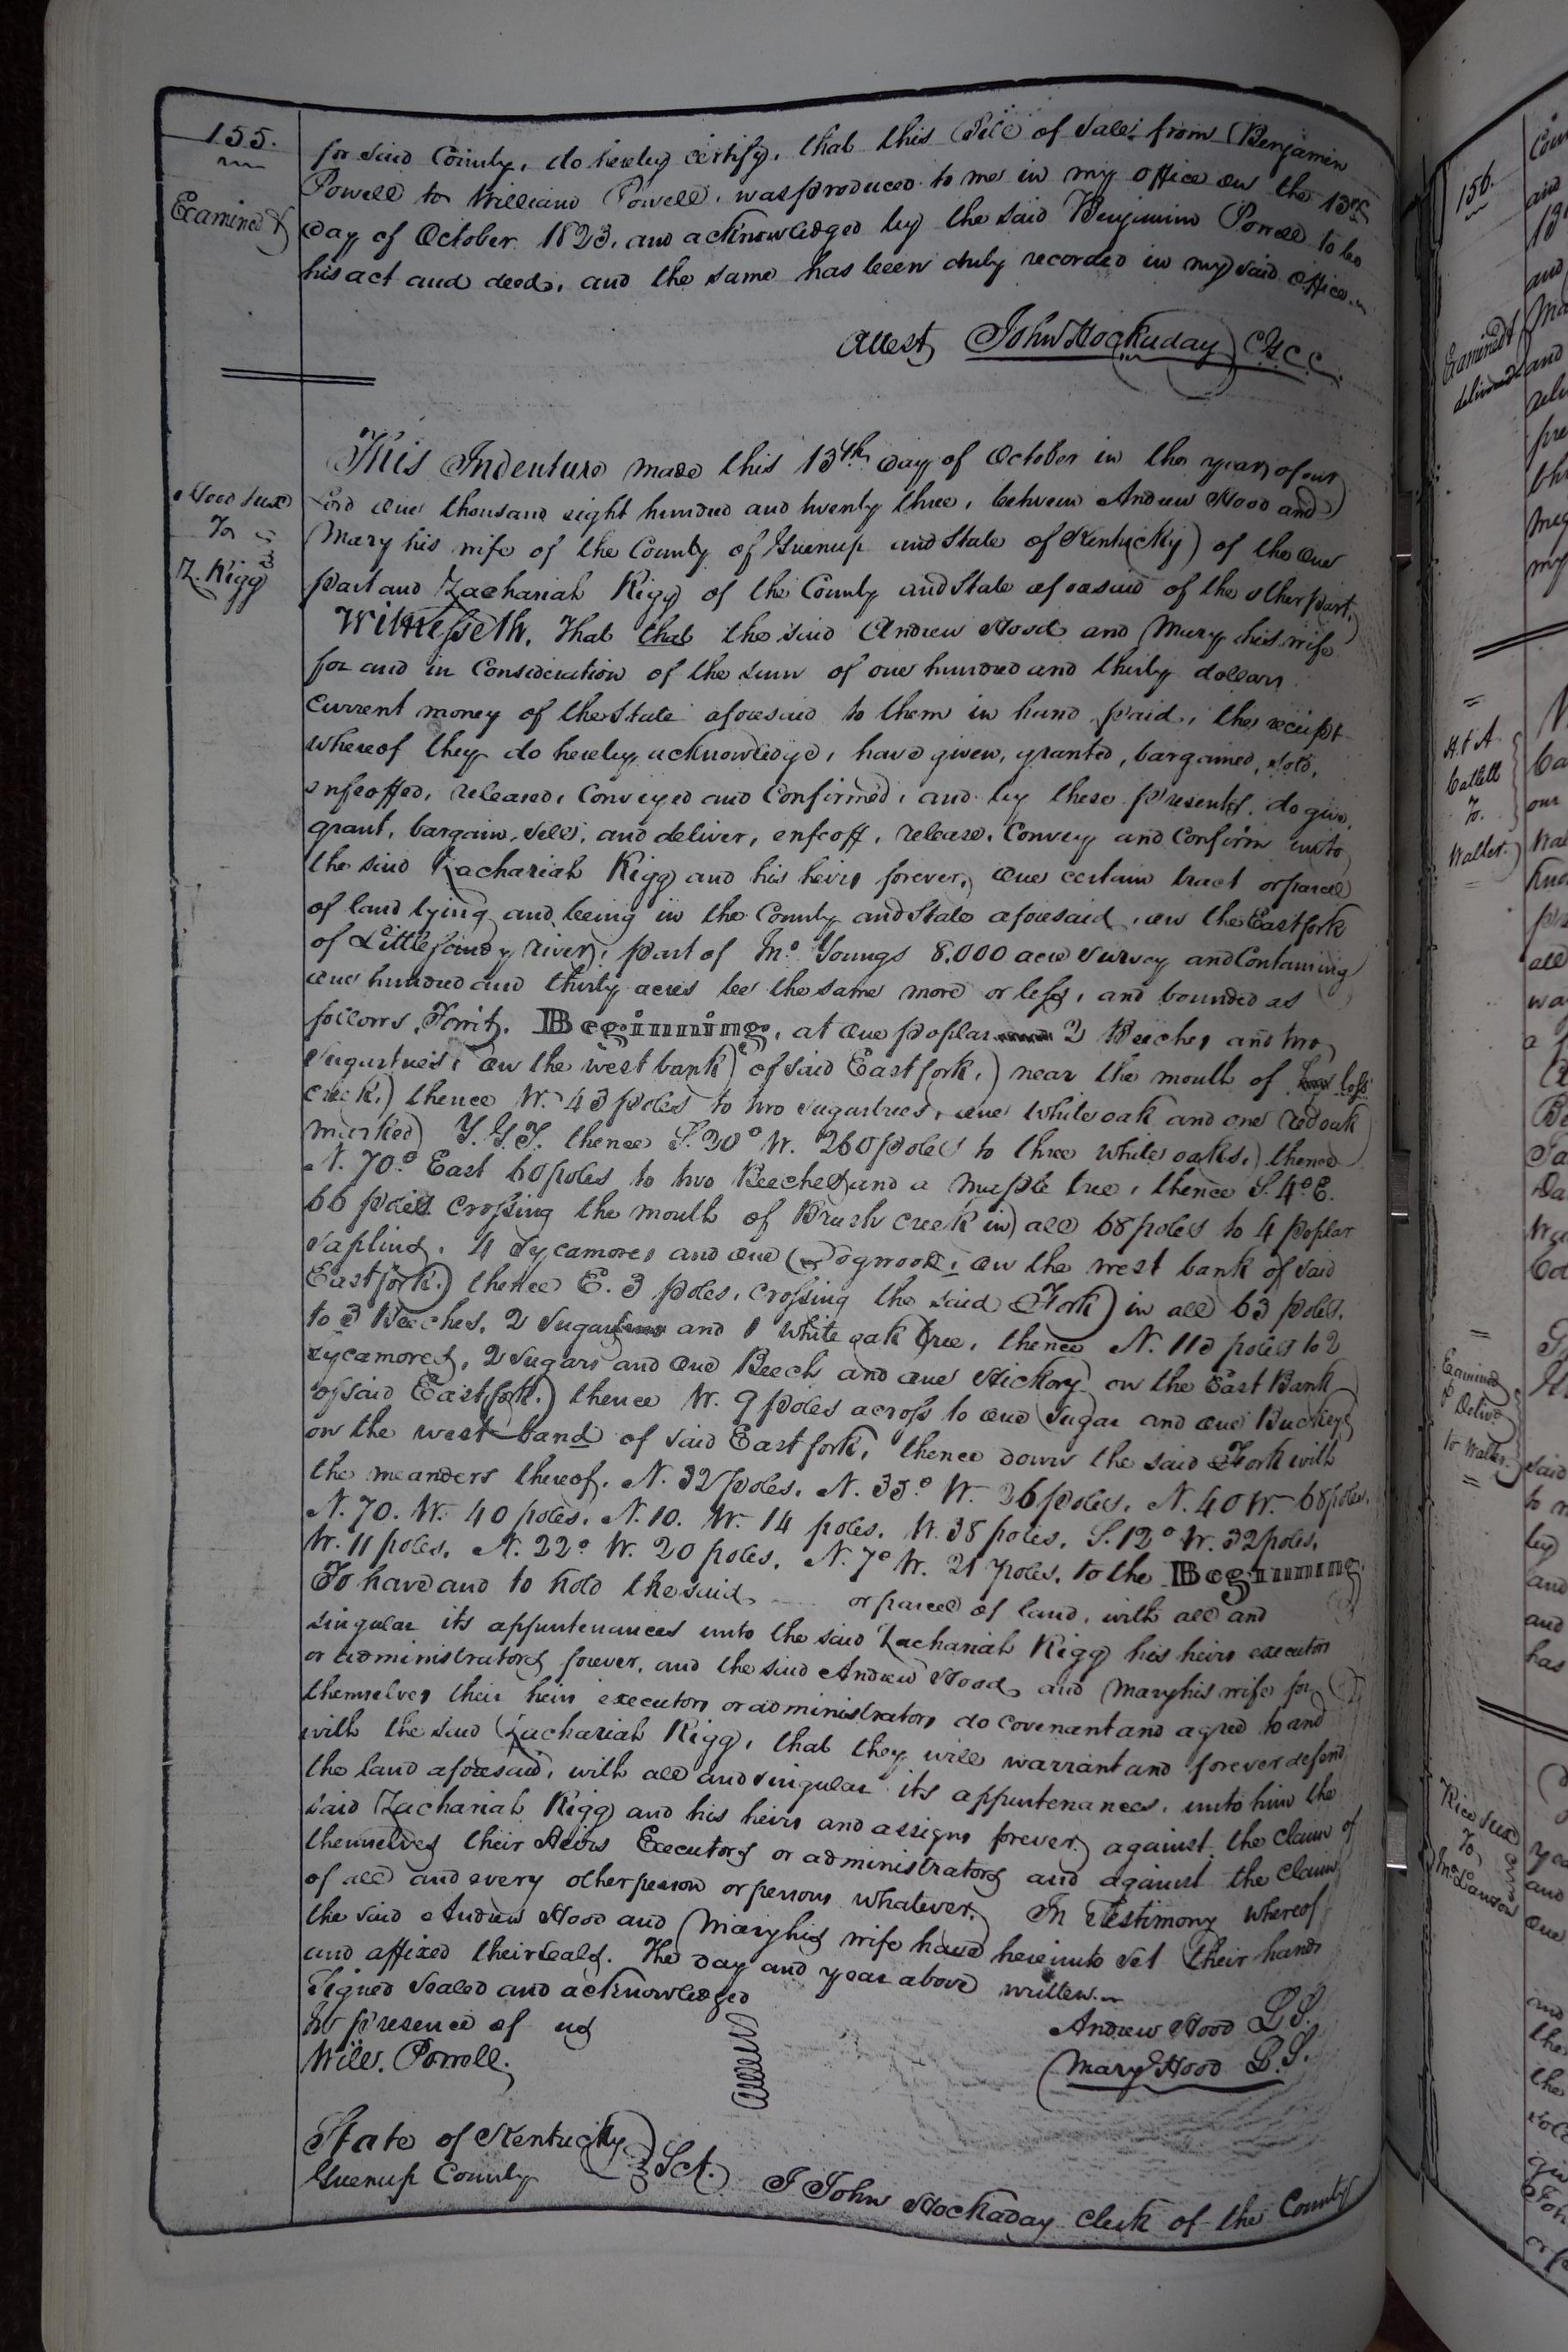 155.
Examined
for said County, do hereby certify, that this Bill of Sale from Benjamin
Powell to William Powell, was produced to me in my office on the 13th
day of October 1823, and acknowledged by the said Benjamin Powell to be
his act and deed, and the same has been duly recorded in my said office.
Attest John Hockaday C.G.C.C.
Hood &ux
To
Z. Rigg
This Indenture made this 13th day of October in the year of our
Lord one thousand eight hundred and twenty three, between Andrew Hood and
Mary his wife of the County of Greenup and State of Kentucky of the one
part and Zachariah Rigg of the County and State aforesaid of the other part,
Witnesseth, That that the said Andrew Hood and Mary his wife
for and in Consideration of the sum of one hundred and thirty dollars
Current money of the State aforesaid to them in hand paid, the receipt
whereof they do hereby acknowledge, have given, granted, bargained, sold,
enfeoffed, released, Conveyed and Confirmed, and by these presents, do give,
grant, bargain, sell, and deliver, enfeoff, release, Convey and Confirm unto
the said Zachariah Rigg and his heirs forever, one certain tract or parcel
of land lying and being in the County and State aforesaid, on the East fork
of Little Sandy river, part of Jno. Youngs 8.000 acre Survey and Containing
one hundred and thirty acres be the same more or less, and bounded as
follows, Towit. Beginning, at one poplar 2 Beeches and two
Sugartrees, on the west bank of said East fork, near the mouth of loss
creek, thence W. 43 poles to two sugartrees, one white oak and one red oak
marked Y. G. T. thence S. 20° W. 260 poles to three white oaks, thence
N. 70° East 60 poles to two Beeches and a maple tree, thence S. 4° E.
66 poles crossing the mouth of Brush creek in all 68 poles to 4 poplar
saplins, 4 Sycamores and one Dogwood, on the west bank of said
East fork, thence E. 3 poles, crossing the said Fork in all 63 poles,
to 3 Beeches, 2 Sugars and 1 white oak tree, thence N. 110 poles to 2
sycamores, 2 sugars and one Beech and one Hickory on the East Bank
of said East fork, thence W. 9 poles across to one Sugar and one Buckeye
on the west band of said East fork, thence down the said Fork with
the meanders thereof, N. 32 poles, N. 35° W. 26 poles, N. 40 W. 68 poles,
N. 70. W. 40 poles, N. 10. W. 14 poles, W. 38 poles, S. 12° W. 32 poles,
W. 11 poles, N. 22° W. 20 poles, N. 7° W. 21 poles, to the Beginning
To have and to hold the said or parcel of land, with all and
singular its appurtenances unto the said Zachariah Rigg his heirs executors
or administrators forever, and the said Andrew Hood and Mary his wife for
themselves their heirs executors or administrators do covenant and agree to and
with the said Zachariah Rigg, that they will warrant and forever defend
the land aforesaid, with all and singular its appurtenances, unto him the
said Zachariah Rigg and his heirs and assigns forever, against the claim of
themselves their Heirs Executors or administrators and against the claim
of all and every other person or persons whatever. In Testimony whereof
the said Andrew Hood and Mary his wife have hereunto set their hands
and affixed their seals. The day and year above written.
Signed Sealed and acknowledged
In presence of us
Will. Powell.
Andrew Hood L.S.
Mary Hood L.S.
State of Kentucky
Greenup County Sct.
I John Hockaday Clerk of the County
156.
Examined &
delivered
H & A
Catlett
To
Waller.
Examined
& Delivd
to Waller
Rice &ux
To